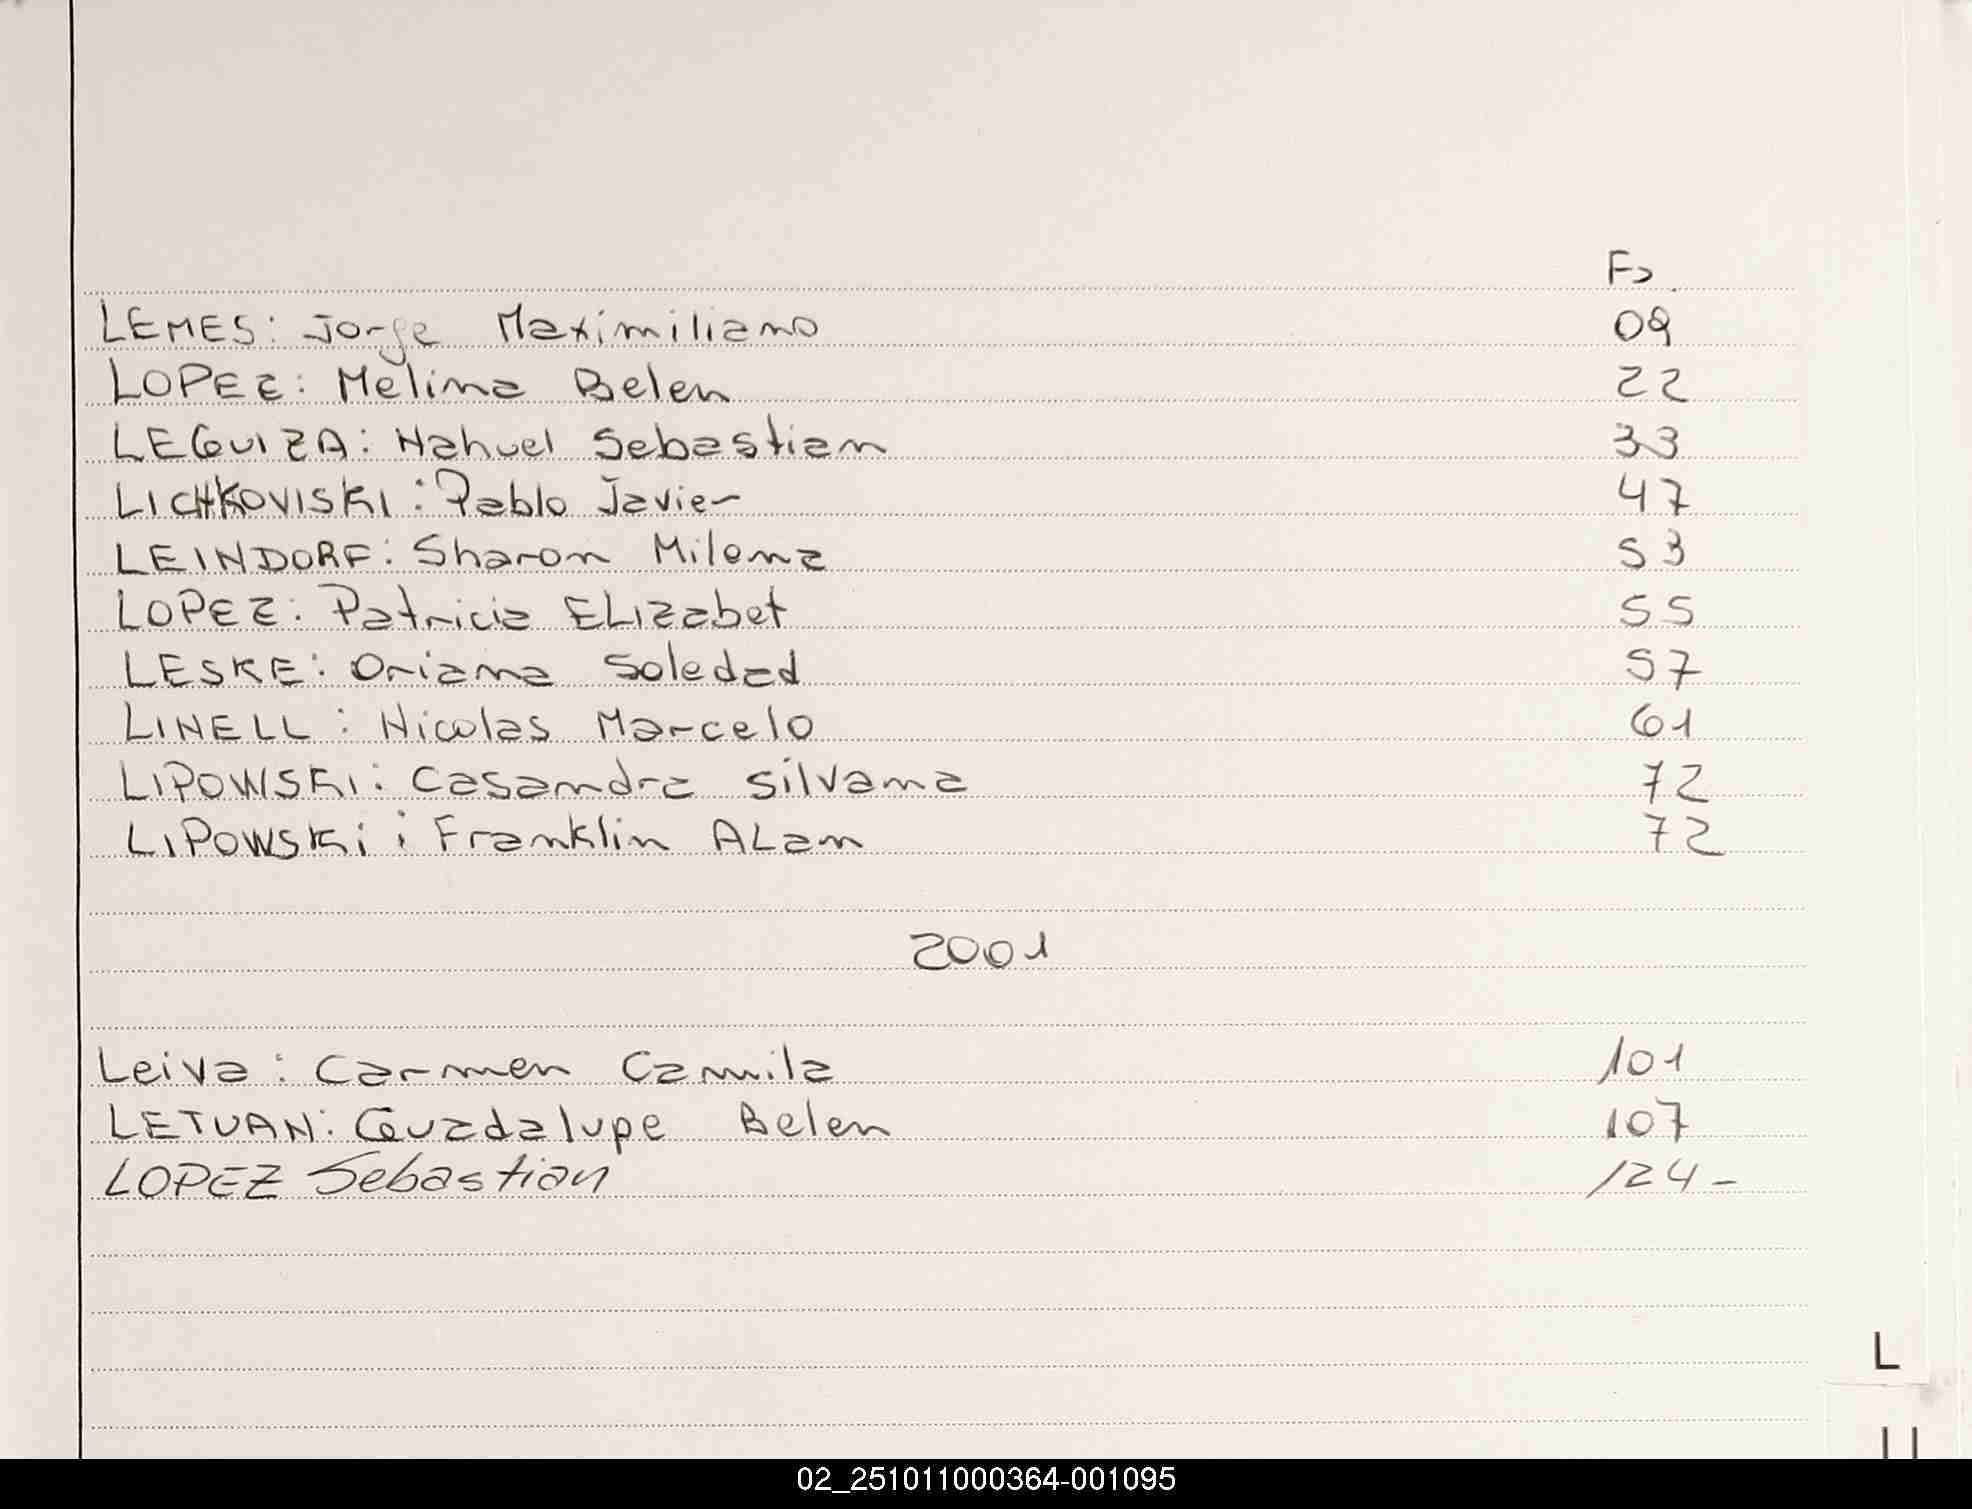 Fo
LEMES: Jorge Maximiliano 09
LOPEZ: Melina Belen 22
LEGUIZA: Nahuel Sebastian 33
LICHKOVISKI: Pablo Javier 47
LEINDORF: Sharon Milena 53
LOPEZ: Patricia ELizabet 55
LESKE: Oriana Soledad 57
LINELL: Nicolas Marcelo 61
LIPOWSKI: Casandra Silvana 72
LIPOWSKi: Franklin ALan 72
2001
Leiva: Carmen Camila 101
LETUAN: Guadalupe Belen 107
LOPEZ Sebastian 124-
L
02_251011000364-001095